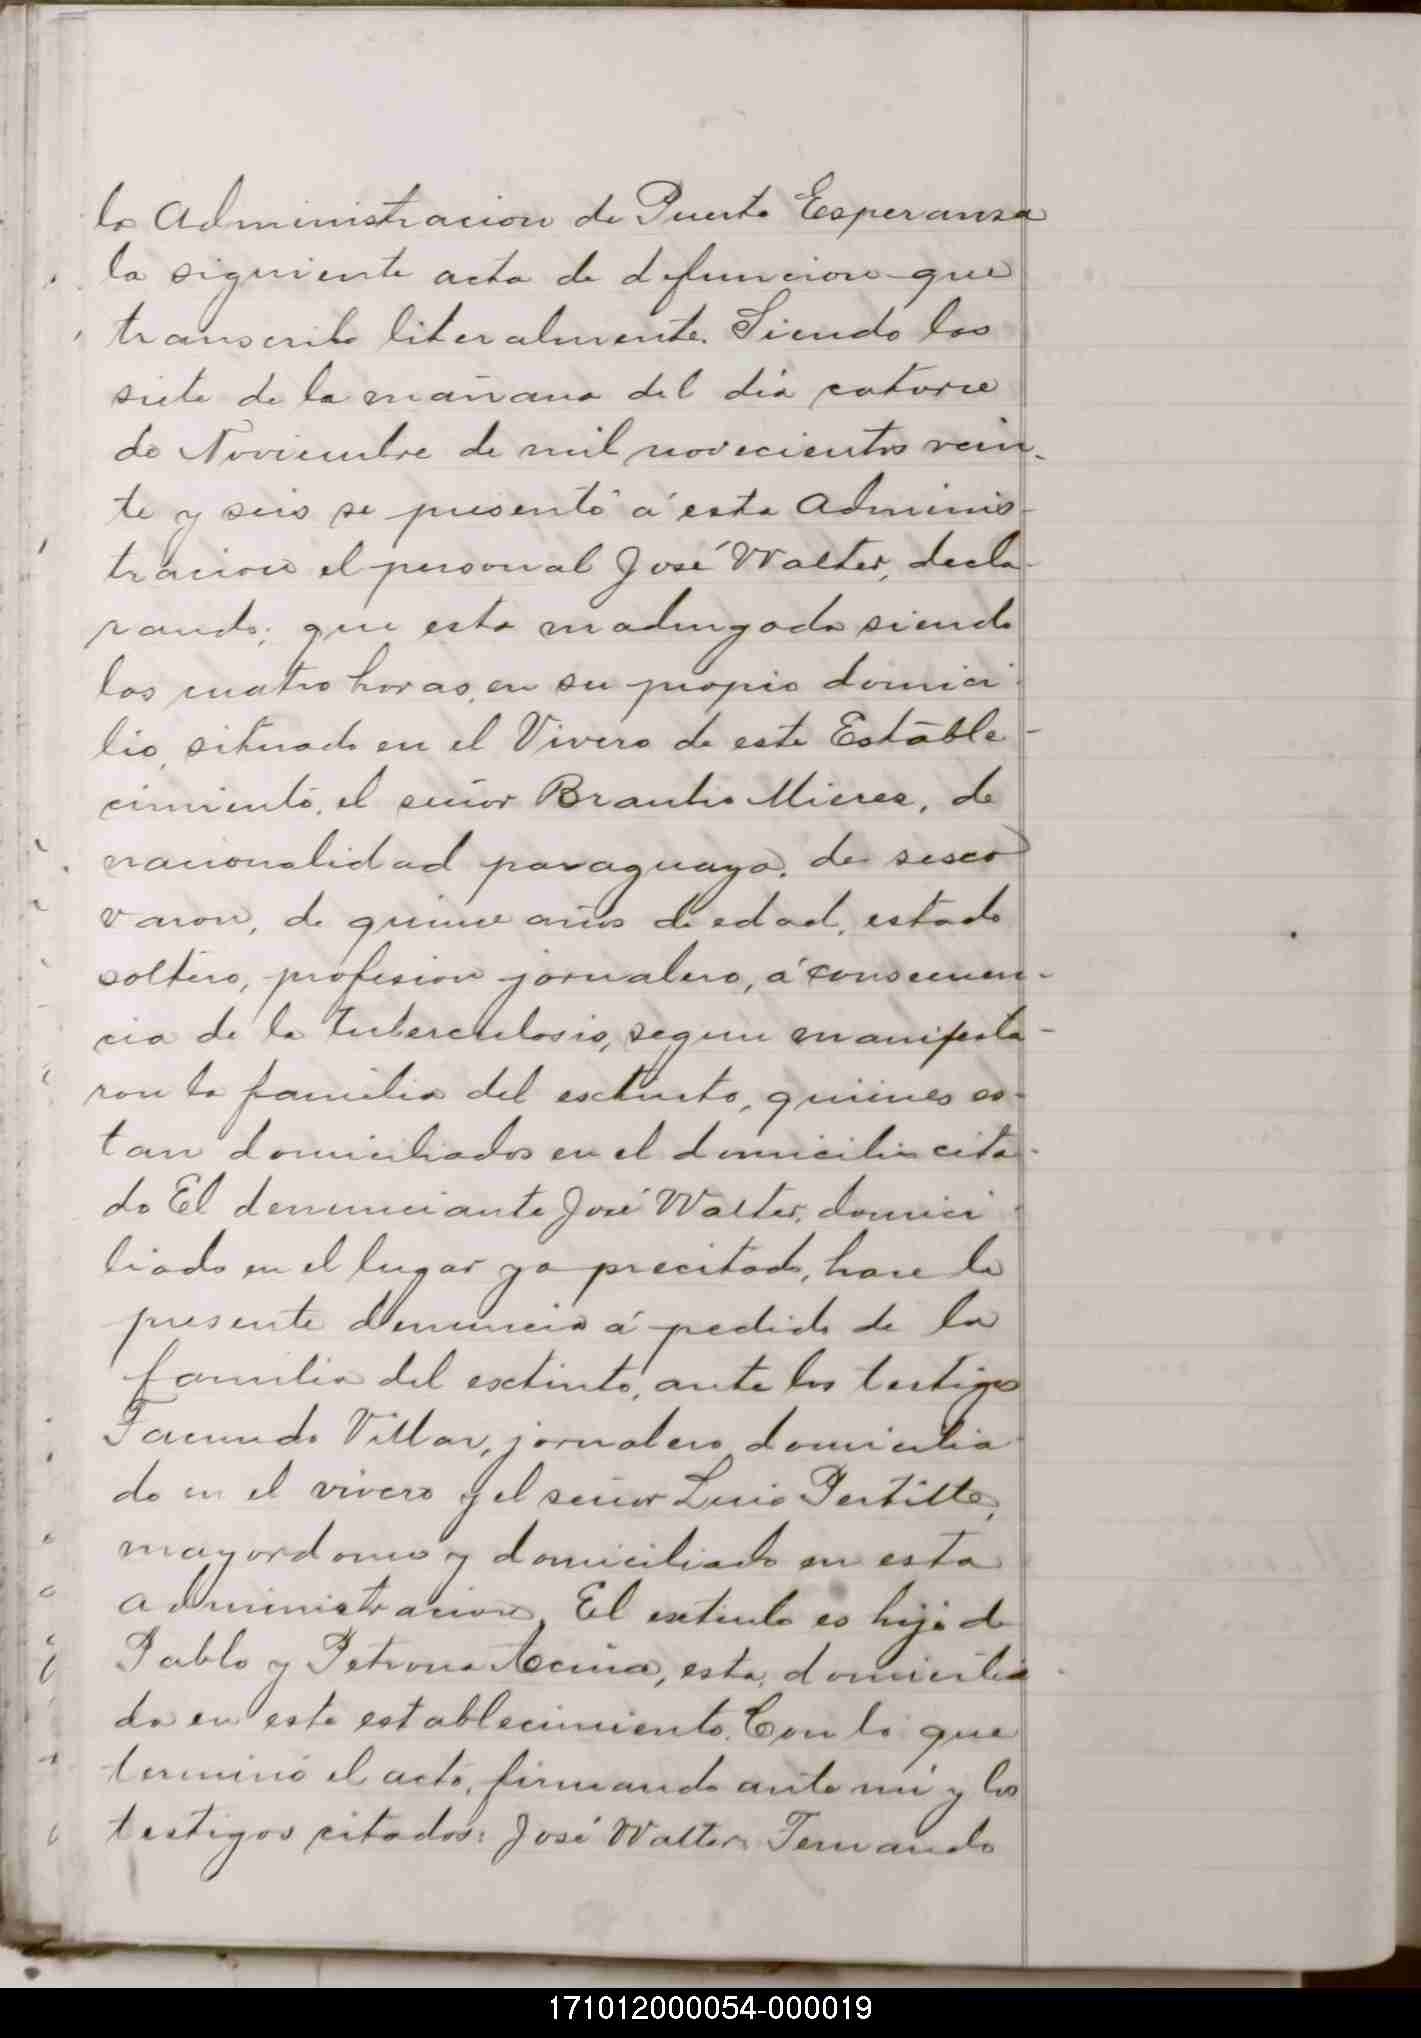 la Administracion de Puerto Esperansa
la siguiente acta de defuncion que
transcribo literalmente. Siendo las
siete de la mañana del dia catorce
de Noviembre de mil novecientos vein-
te y seis se presentó á esta Adminis-
tracion el personal José Walter, decla-
rando; que esta madrugada siendo
las cuatro horas, en su propio domici-
lio, situado en el Vivero de este Estable-
cimiento, el señor Braulio Mieres, de
nacionalidad paraguaya, de secso
varon, de quince años de edad, estado
soltero, profesion jornalero, á consecuen-
cia de la tuberculosis, segun manifesta-
ron la familia del esctinto, quiénes es-
tan domiciliados en el domicilio cita-
do El denunciante José Walter, domici-
liado en el lugar ya precitado, hace la
presente denuncia á pedido de la
familia del esctinto, ante los testigos
Facundo Villar, jornalero domicilia-
do en el vivero y el señor Luis Portillo,
mayordomo y domiciliado en esta
administracion. El extinto es hijo de
Pablo y Petrona Acuña, esta domicilia-
da en este establecimiento. Con lo que
terminó el acto, firmando ante mí y los
testigos citados: José Walter. Fernando
171012000054-000019